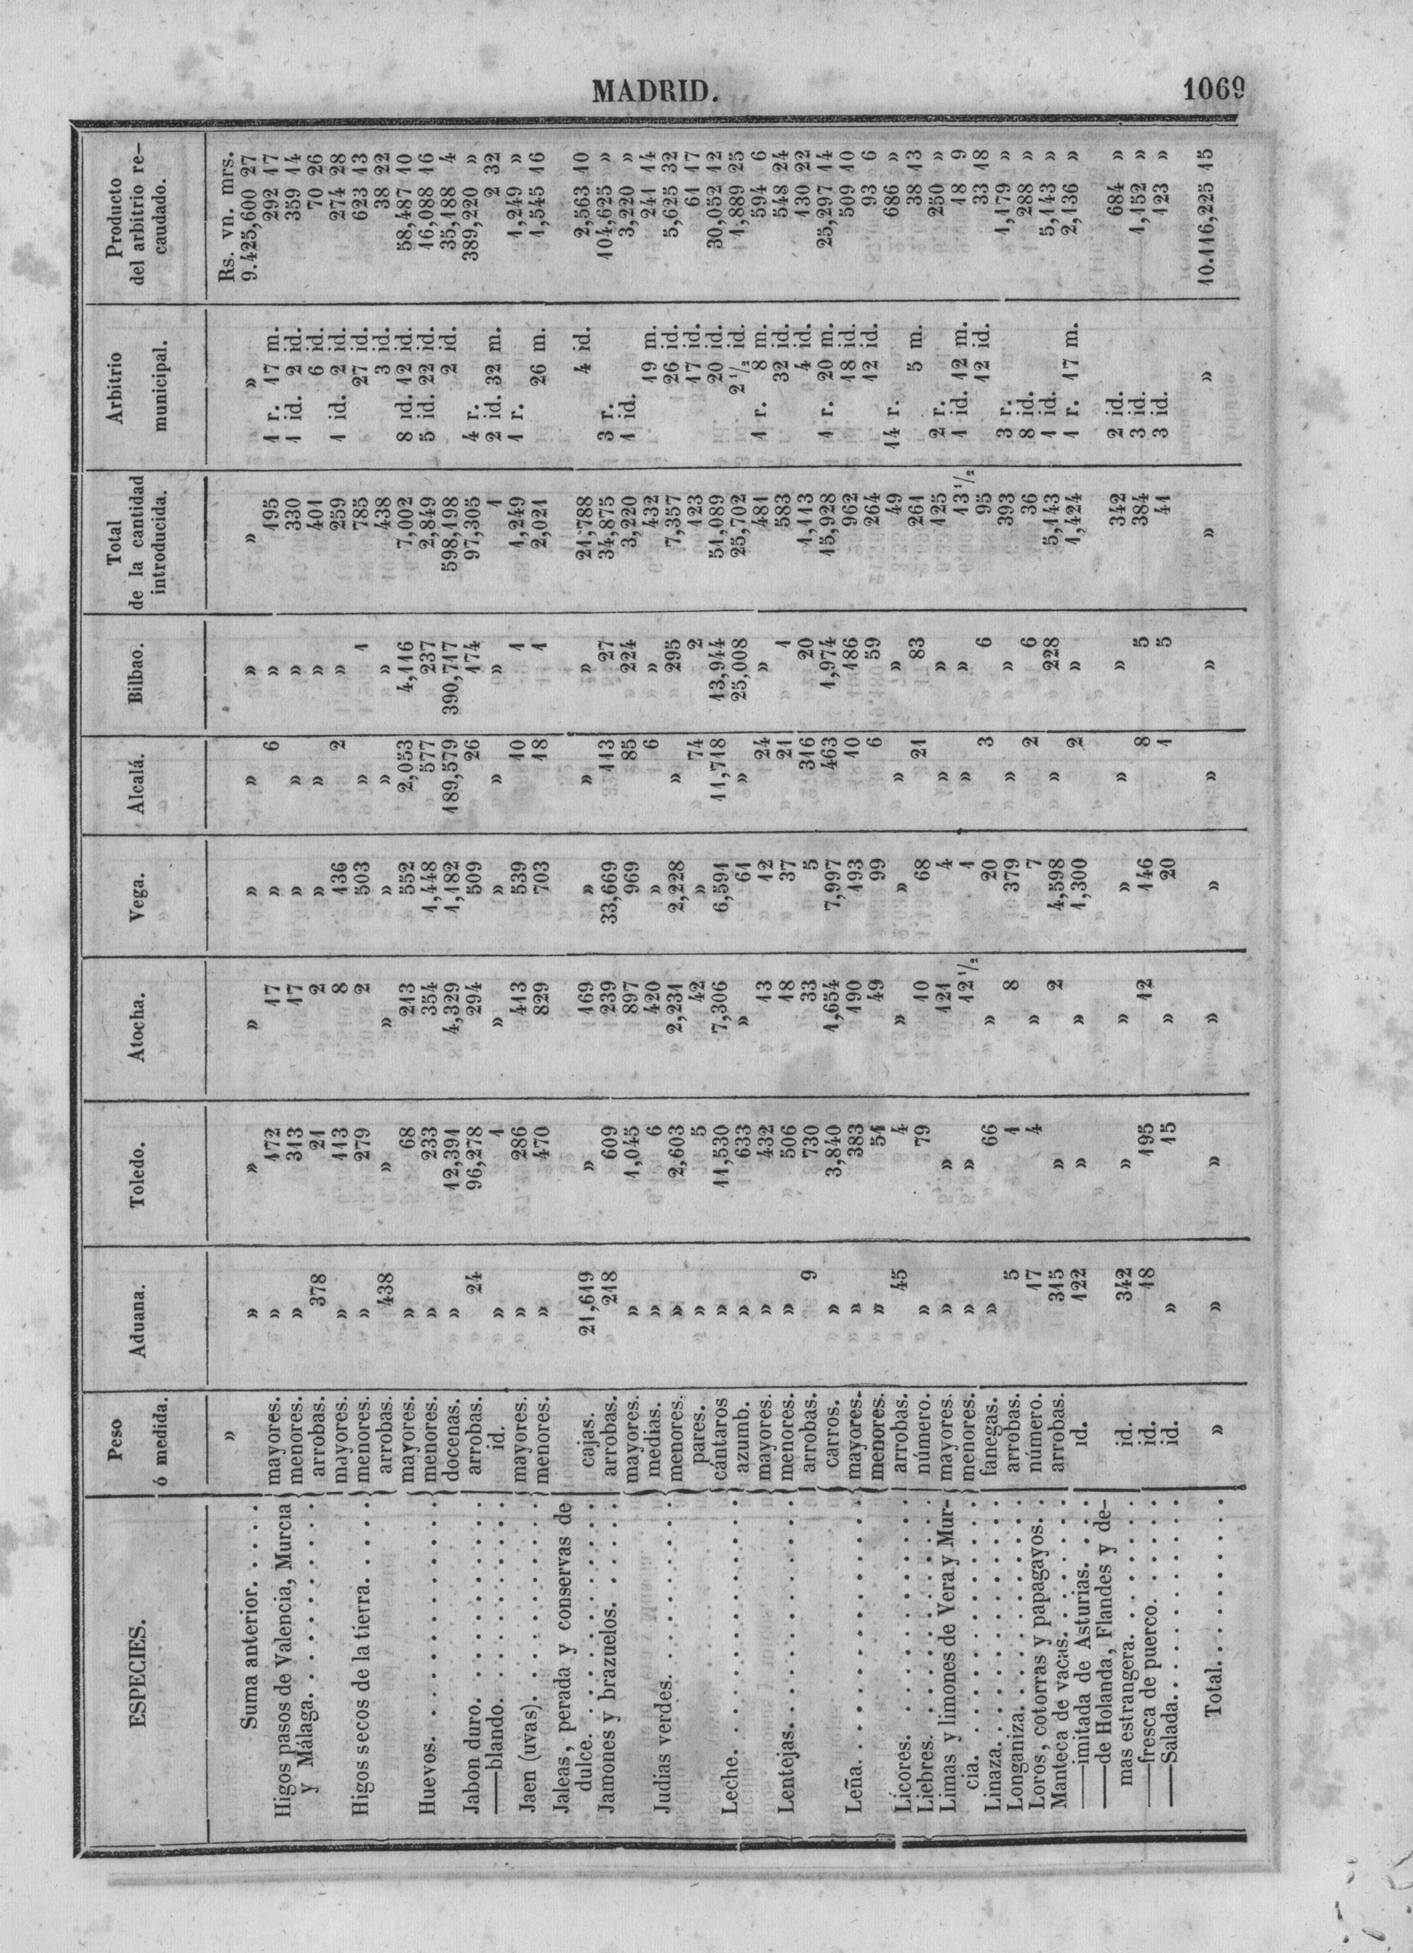 MADRID.
1069
ESPECIES. Peso ó medida. Aduana. Toledo. Atocha. Vega. Alcalá. Bilbao. Total de la cantidad introducida. Arbitrio municipal. Producto del arbitrio re-caudado.
Rs. vn. mrs.
Suma anterior. . . . . » » » » » » » » » 9.425,600 27
Higos pasos de Valencia, Murcia mayores. » 172 17 » 6 » 195 1 r. 17 m. 292 17
menores. » 313 17 » » » 330 1 id. 2 id. 359 14
y Málaga. . . . . . . . . arrobas. 378 21 2 » » » 401 6 id. 70 26
mayores. » 113 8 136 2 » 259 1 id. 2 id. 274 28
Higos secos de la tierra. . . . . menores. » 279 2 503 » 1 785 27 id. 623 13
arrobas. 438 » » » » » 438 3 id. 38 22
mayores. » 68 213 552 2,053 4,116 7,002 8 id. 12 id. 58,487 10
Huevos. . . . . . . . . . . menores. » 233 354 1,448 577 237 2,849 5 id. 22 id. 16,088 16
docenas. » 12,391 4,329 1,182 189,579 390,717 598,198 2 id. 35,188 4
Jabon duro. . . . . . . . . arrobas. 24 96,278 294 509 26 174 97,305 4 r. 389,220 »
——blando. . . . . . . . . id. » 1 » » » » 1 2 id. 32 m. 2 32
mayores. » 286 413 539 10 1 1,249 1 r. 1,249 »
Jaen (uvas). . . . . . . . menores. » 470 829 703 18 1 2,021 26 m. 1,545 16
Jaleas, perada y conservas de
dulce. . . . . . . . . . . cajas. 21,619 » 169 » » » 21,788 4 id. 2,563 10
Jamones y brazuelos. . . . . arrobas. 218 609 239 33,669 113 27 34,875 3 r. 104,625 »
mayores. » 1,045 897 969 85 224 3,220 1 id. 3,220 »
Judias verdes. . . . . . . . medias. » 6 420 » 6 » 432 19 m. 241 14
menores. » 2,603 2,231 2,228 » 295 7,357 26 id. 5,625 32
pares. » 5 42 » 74 2 123 17 id. 61 17
Leche. . . . . . . . . . . cántaros » 11,530 7,306 6,591 11,718 13,944 51,089 20 id. 30,052 12
azumb. » 633 » 61 » 25,008 25,702 2 1/2 id. 1,889 25
mayores. » 432 13 12 24 » 481 1 r. 8 m. 594 6
Lentejas. . . . . . . . . . menores. » 506 18 37 21 1 583 32 id. 548 24
arrobas. 9 730 33 5 316 20 1,113 4 id. 130 22
carros. » 3,840 1,654 7,997 463 1,974 15,928 1 r. 20 m. 25,297 14
Leña. . . . . . . . . . . . mayores. » 383 190 193 10 186 962 18 id. 509 10
menores. » 51 49 99 6 59 264 12 id. 93 6
Licores. . . . . . . . . . . arrobas. 45 4 » » » » 49 14 r. 686 »
Liebres. . . . . . . . . . . número. » 79 10 68 21 83 261 5 m. 38 13
Limas y limones de Vera y Mur- mayores. » » 121 4 » » 125 2 r. 250 »
cia. . . . . . . . . . . . menores. » » 12 1/2 1 » » 13 1/2 1 id. 12 m. 18 9
Linaza. . . . . . . . . . . fanegas. » 66 » 20 3 6 95 12 id. 33 18
Longaniza. . . . . . . . . . arrobas. 5 1 8 379 » » 393 3 r. 1,179 »
Loros, cotorras y papagayos. . número. 17 4 » 7 2 6 36 8 id. 288 »
Manteca de vacas. . . . . . arrobas. 315 » 2 4,598 » 228 5,143 1 id. 5,143 »
——imitada de Asturias. . . . id. 122 » » 1,300 2 » 1,424 1 r. 17 m. 2,136 »
——de Holanda, Flandes y de-
mas estrangera. . . . . . . id. 342 » » » » » 342 2 id. 684 »
——fresca de puerco. . . . . id. 18 195 12 146 8 5 384 3 id. 1,152 »
——Salada. . . . . . . . . . id. » 15 » 20 1 5 41 3 id. 123 »
Total. . . . . . . . » » » » » » » » » 10.116,225 15